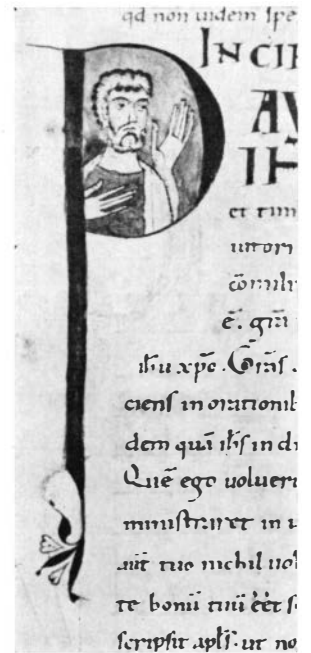 qd non uidem spe
INCIP
PAU
IH
et tim
uitori
cōmili
ē. grā
ihu xpo. Gr̄as
ciens in orationib
dem quā ihs in d
Quē ego uoluer
ministraret in u
aut̄ tuo nichil uol
te bonū tuū ēēt s
scripsit apls. ut no